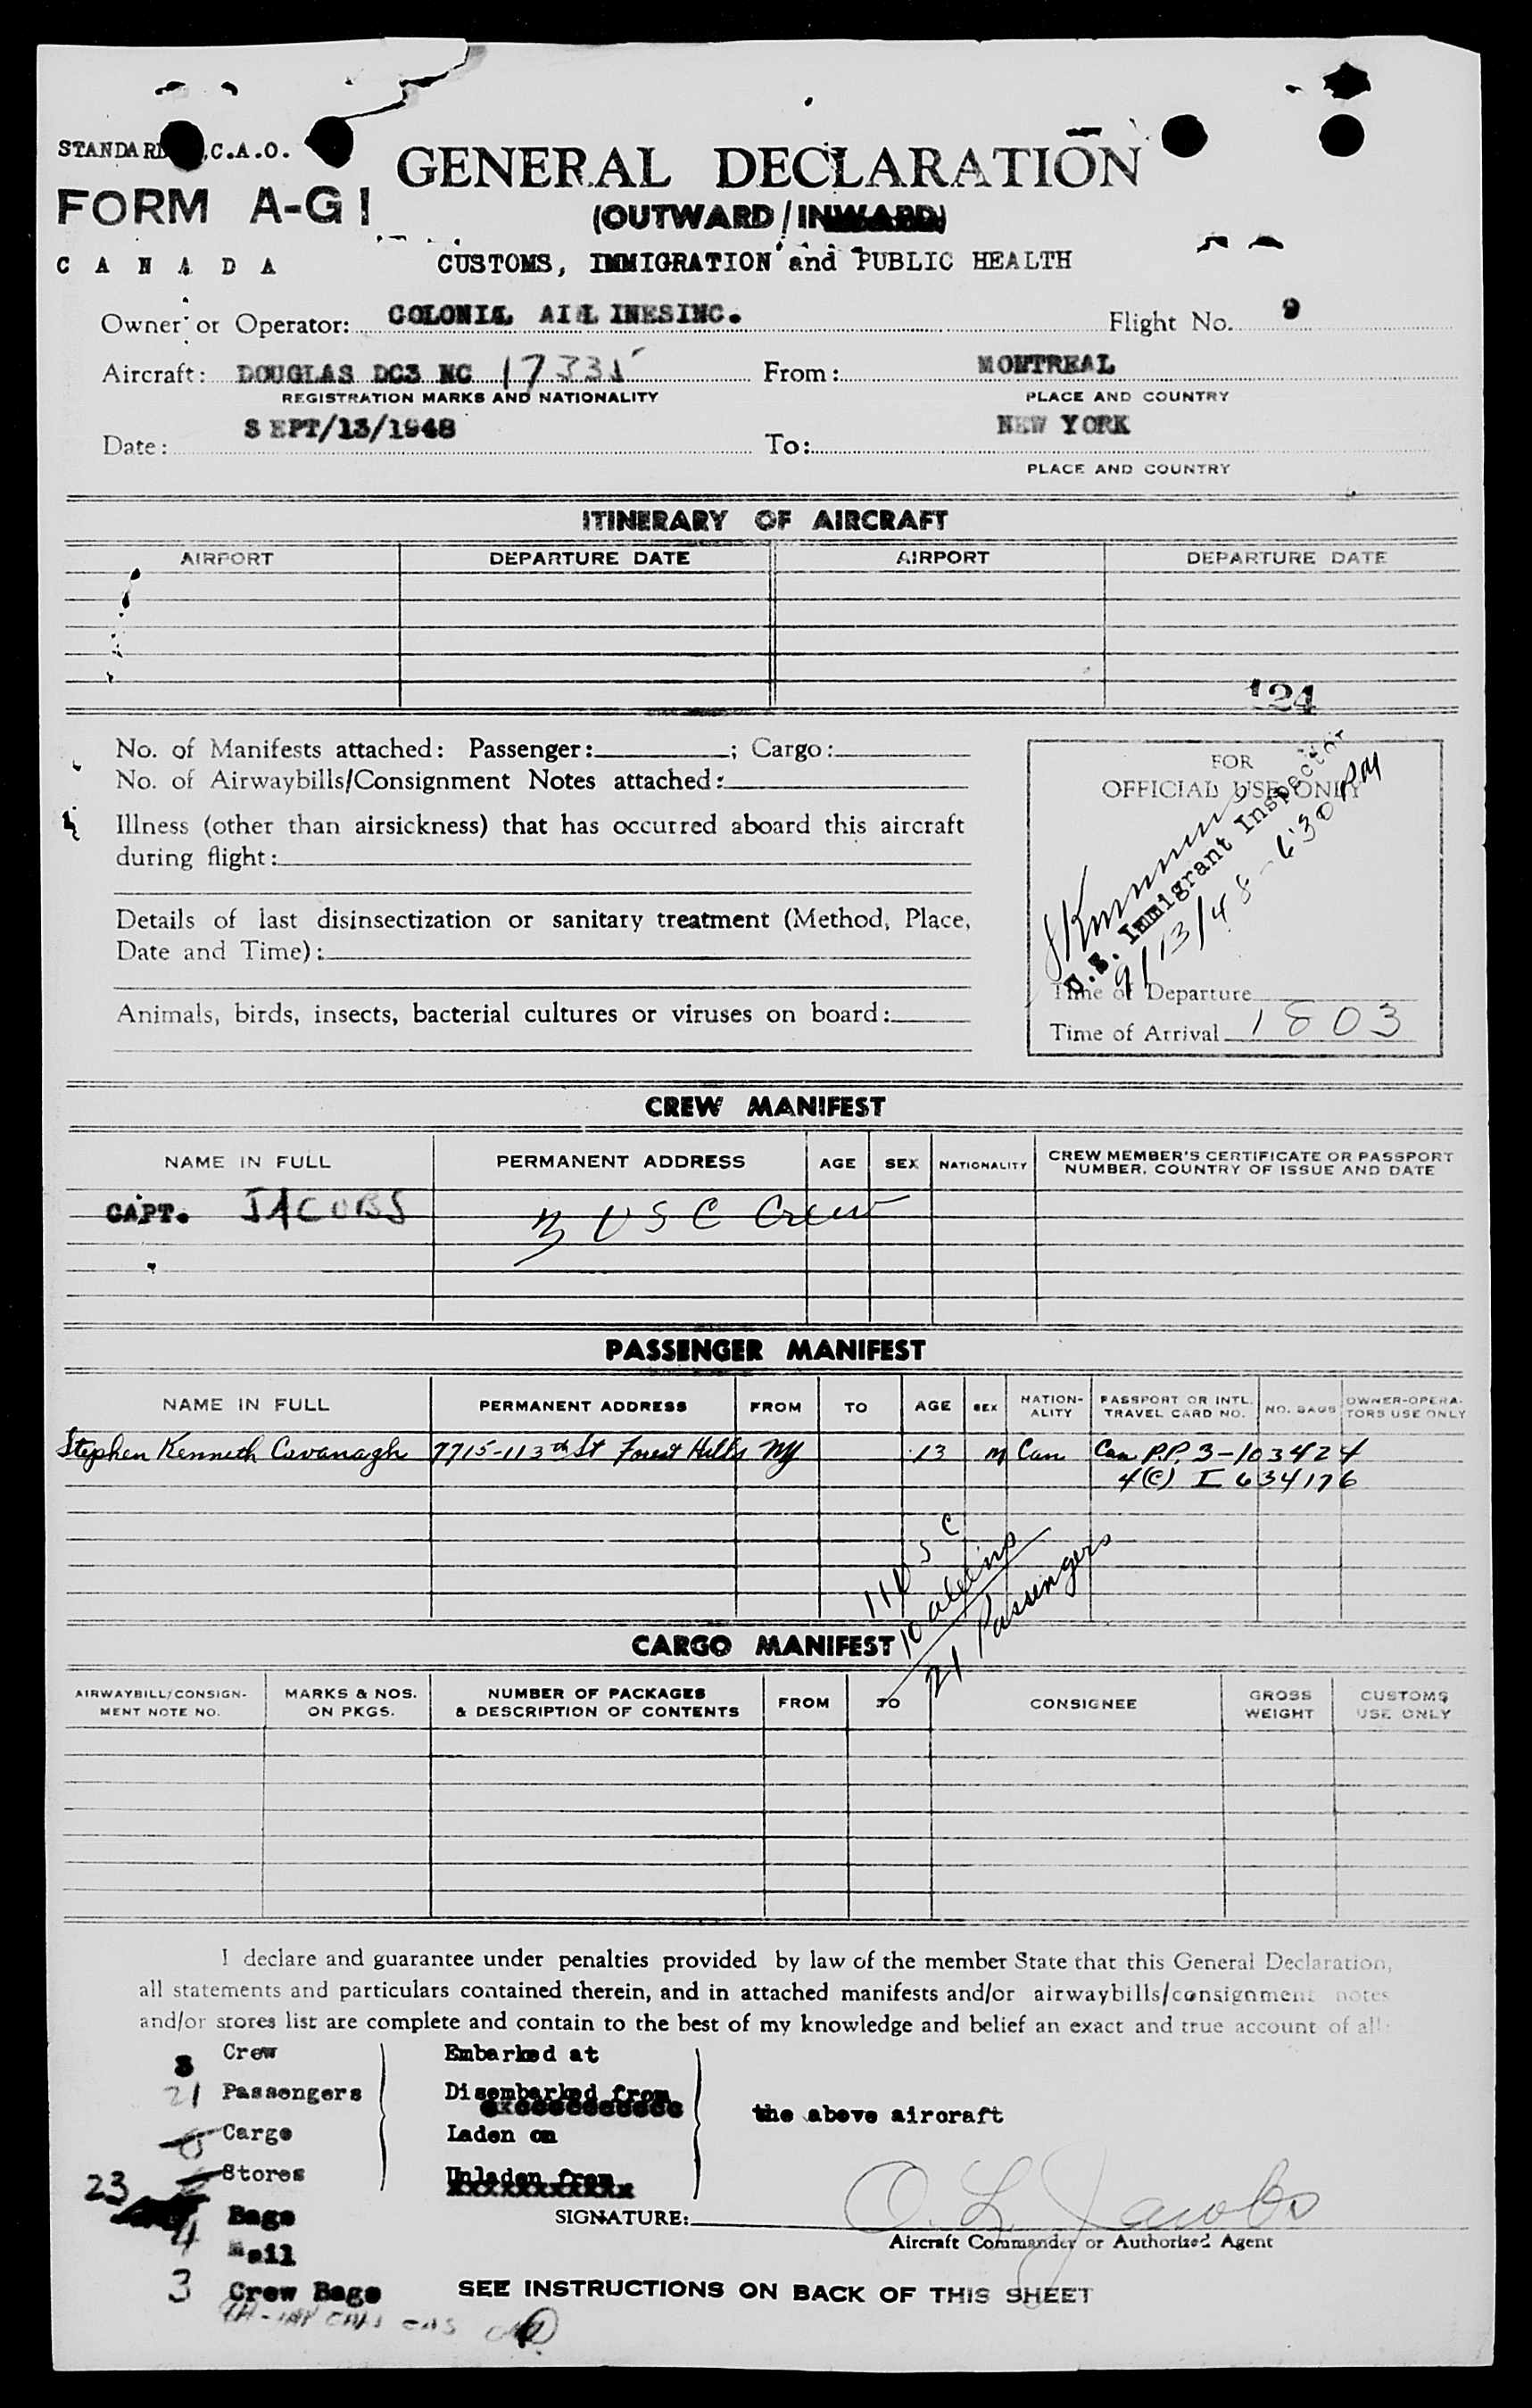 STANDARD I.C.A.O.
GENERAL DECLARATION
FORM A-G1
(OUTWARD/INWARD)
CANADA
CUSTOMS, IMMIGRATION and PUBLIC HEALTH
Owner or Operator: COLONIAL AIRLINES INC. Flight No. 9
Aircraft: DOUGLAS DC3 NC 17335 From: MONTREAL
REGISTRATION MARKS AND NATIONALITY PLACE AND COUNTRY
Date: SEPT/13/1948 To: NEW YORK
PLACE AND COUNTRY
ITINERARY OF AIRCRAFT
AIRPORT DEPARTURE DATE AIRPORT DEPARTURE DATE
124
No. of Manifests attached: Passenger: ; Cargo:
No. of Airwaybills/Consignment Notes attached:
Illness (other than airsickness) that has occurred aboard this aircraft
during flight:
Details of last disinsectization or sanitary treatment (Method, Place,
Date and Time):
Animals, birds, insects, bacterial cultures or viruses on board:
FOR
OFFICIAL USE ONLY
U.S. Immigrant Inspector
9/13/48 - 630 PM
Time of Departure
Time of Arrival 1803
CREW MANIFEST
NAME IN FULL PERMANENT ADDRESS AGE SEX NATIONALITY CREW MEMBER'S CERTIFICATE OR PASSPORT
NUMBER, COUNTRY OF ISSUE AND DATE
CAPT. JACOBS 3 USC Crew
PASSENGER MANIFEST
NAME IN FULL PERMANENT ADDRESS FROM TO AGE SEX NATION-
ALITY PASSPORT OR INTL.
TRAVEL CARD NO. NO. BAGS OWNER-OPERA-
TORS USE ONLY
Stephen Kenneth Cavanagh 7715-113th St Forest Hills NY 13 M Can Can P.P. 3-103424
4(C) I 634176
11 U S C
10 aliens
21 Passengers
CARGO MANIFEST
AIRWAYBILL/CONSIGN-
MENT NOTE NO. MARKS & NOS.
ON PKGS. NUMBER OF PACKAGES
& DESCRIPTION OF CONTENTS FROM TO CONSIGNEE GROSS
WEIGHT CUSTOMS
USE ONLY
I declare and guarantee under penalties provided by law of the member State that this General Declaration,
all statements and particulars contained therein, and in attached manifests and/or airwaybills/consignment notes
and/or stores list are complete and contain to the best of my knowledge and belief an exact and true account of all:
3 Crew Embarked at
21 Passengers Disembarked from
the above aircraft
0 Cargo Laden on
Stores Unladen from
23 Bags
SIGNATURE: O. L. Jacobs
Aircraft Commander or Authorized Agent
4 Mail
3 Crew Bags
SEE INSTRUCTIONS ON BACK OF THIS SHEET